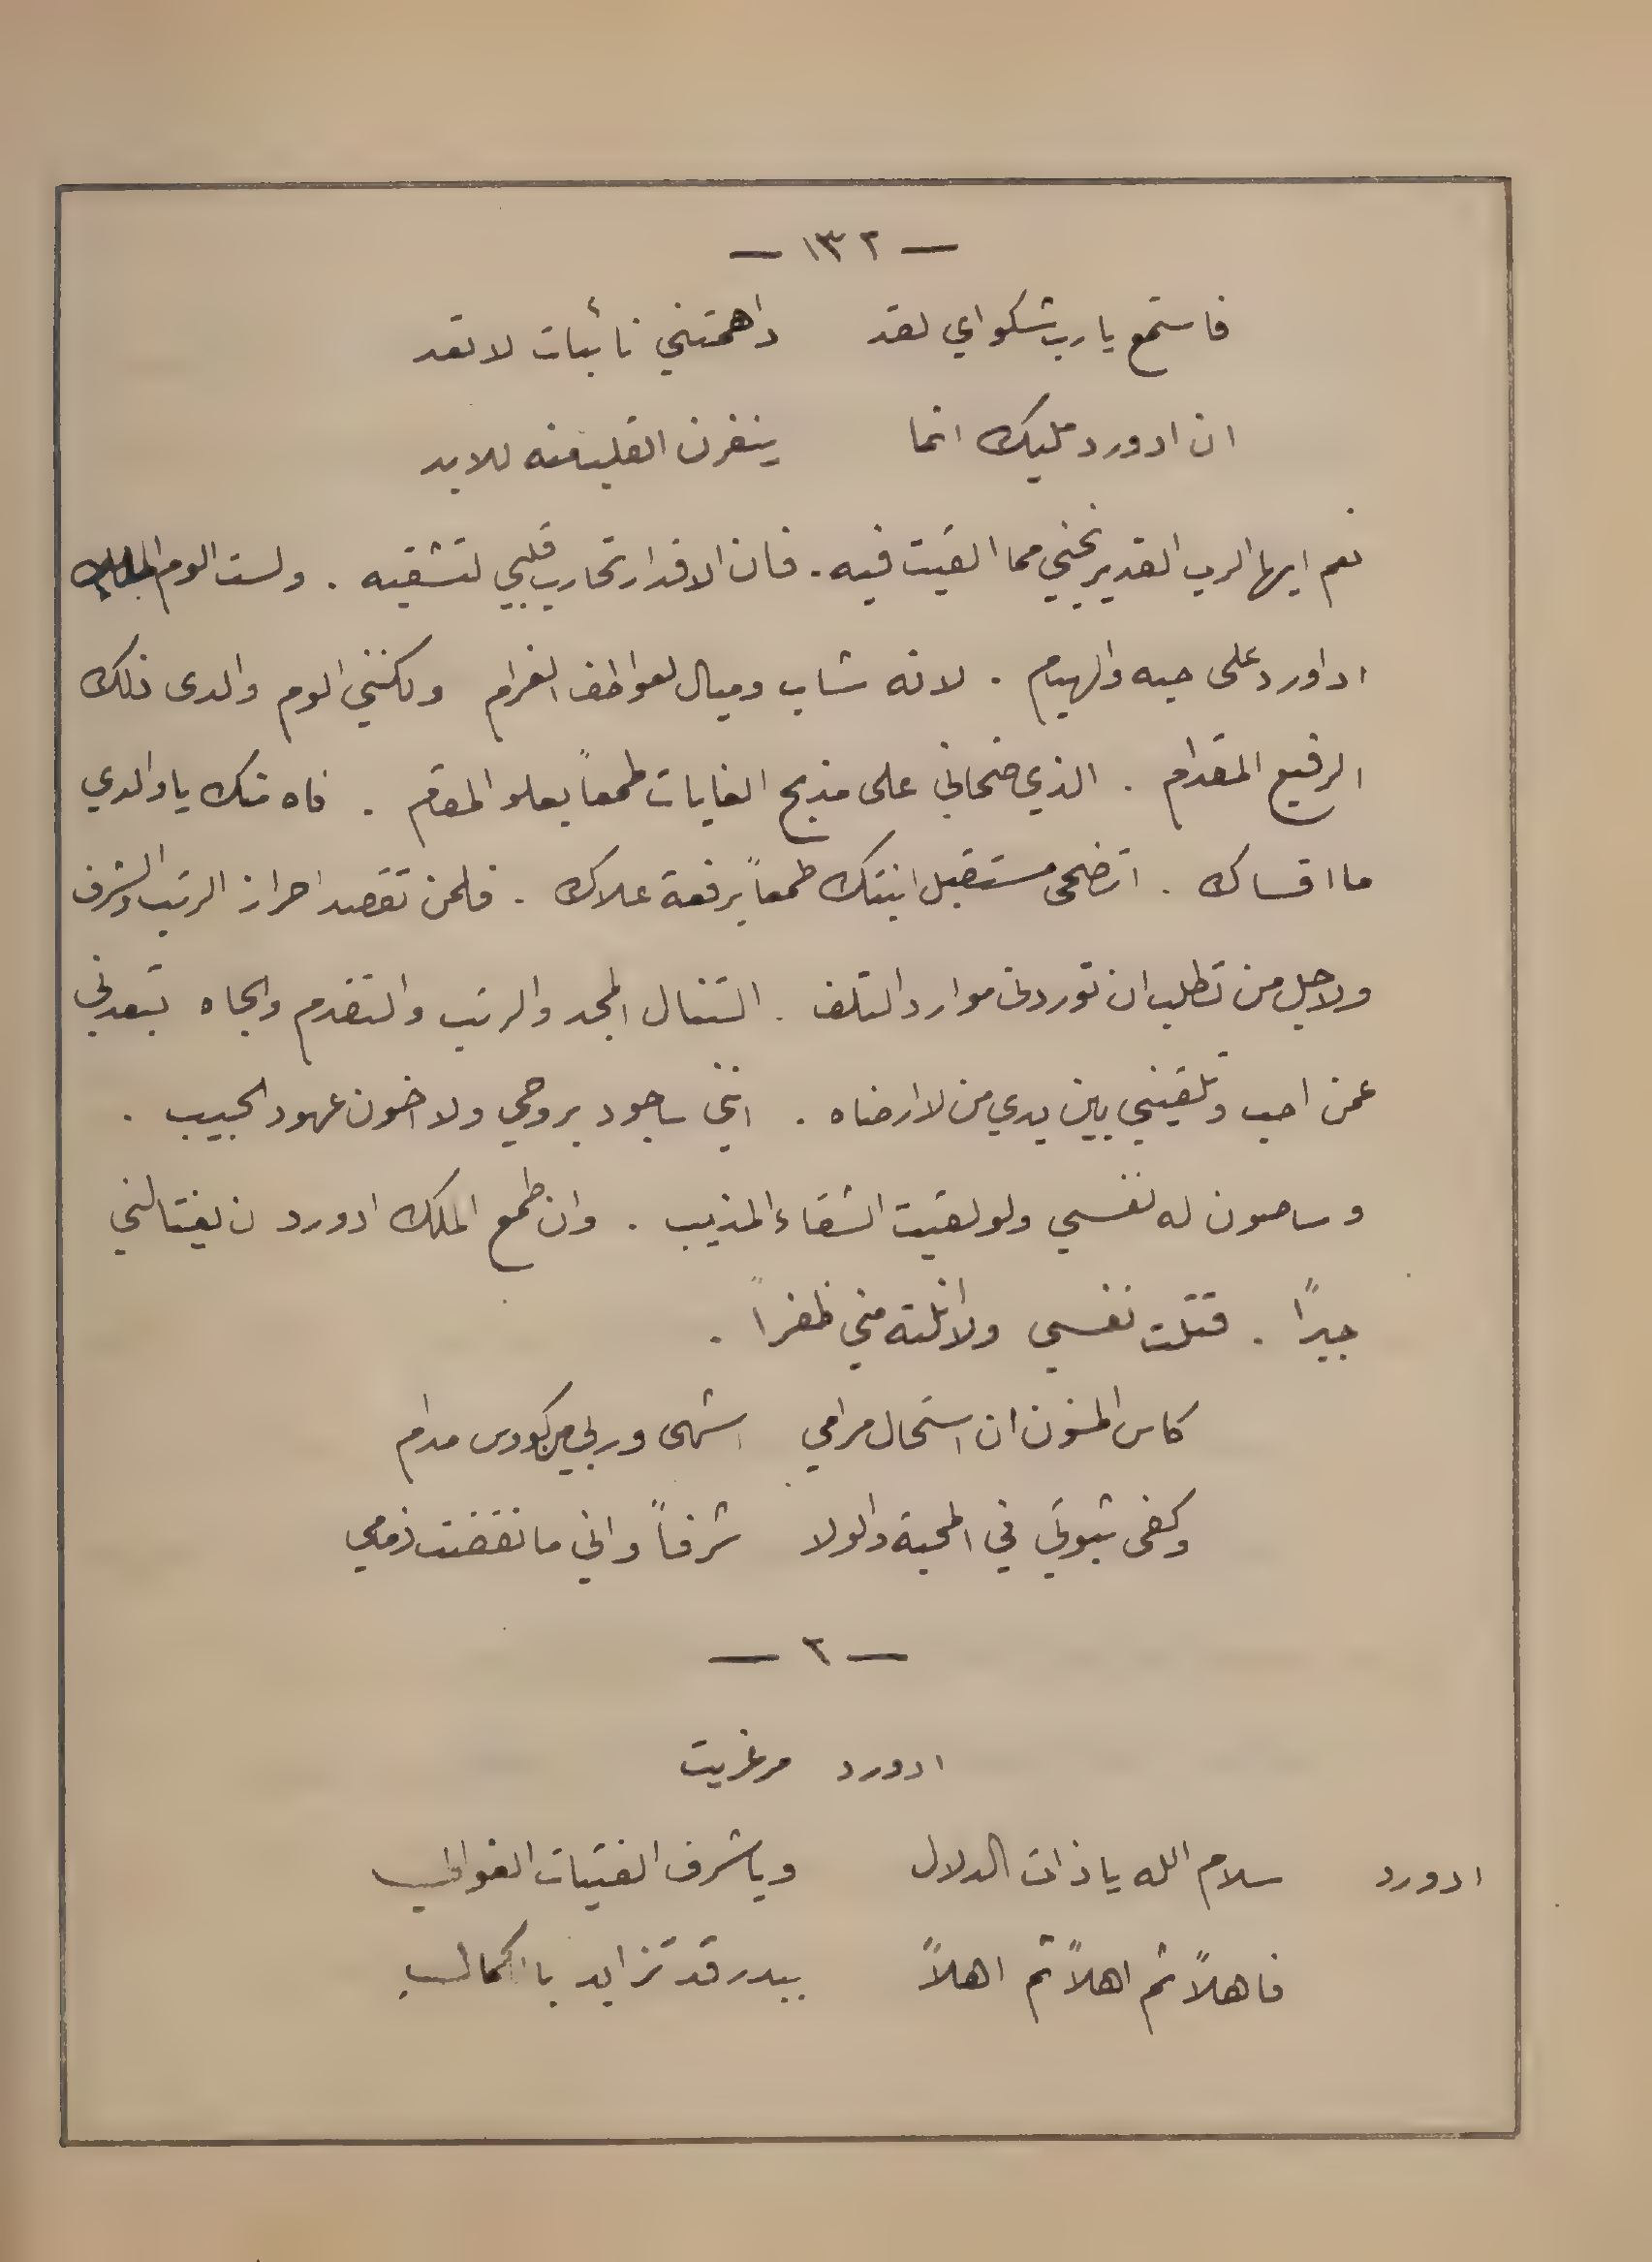 — ١٣٢ —
فاستمع يا رب شكواي لقد داهمتني نائبات لا تعد
ان ادورد مليك انما ينفرن القلب منه للابد
نعم ايها الرب القدير نجني مما القيت فيه . فان الاقدار تحارب قلبي لتشقيه . ولست الوم الملك
ادوارد على حبه والهيام . لانه شاب وميال لعواطف الغرام ولكنني الوم والدى ذلك
الرفيع المقدام . الذي ضحاني على مذبح الغايات طمعاً بعلو المقام . فاه منك يا والدي
ما اقساك . اتضحى مستقبل ابنتك طمعاً برفعة علاك . فلمن تقصد احراز الرتب والشرف
ولاجل من تطلب ان توردنى موارد التلف . التنال المجد والرتب والتقدم والجاه تبعدني
عمن احب وتلقيني بين يدي من لا ارضاه . انني ساجود بروحي ولا اخون عهود الحبيب .
وساصون له نفسي ولو لقيت الشقاء المذيب . وان طمع الملك ادورد ن يغتالني
جبرًا . قتلت نفسي ولا انلته مني ظفراً .
كاس المنون ان استحال مرامي اشهى وربي من كووس مدام
وكفى ثبوتي في المحبة والولا شرفاً واني ما نقضت ذمامي
— ٢ —
ادورد مرغريت
ادورد سلام الله يا ذات الدلال ويا شرف الفتيات الغوالي
فاهلاً ثم اهلاً ثم اهلاً ببدر قد تزايد بالكمال